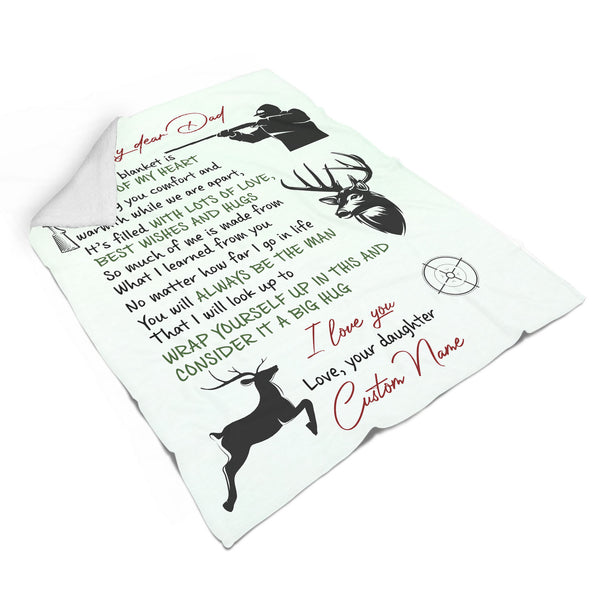 dear Dad
blanket is
OF MY HEART
you comfort and
warmth while we are apart,
It's filled WITH LOTS OF LOVE,
BEST WISHES AND HUGS
So much of me is made from
What I learned from you
No matter how far I go in life
You will ALWAYS BE THE MAN
That I will look up to
WRAP YOURSELF UP IN THIS AND
CONSIDER IT A BIG HUG
I love you
Love, your daughter
Custom Name